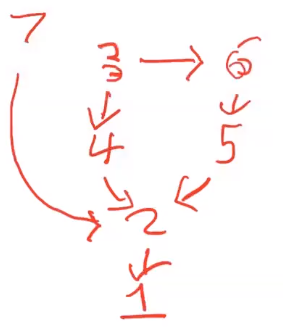 7
3 → 6
4 5
2
1